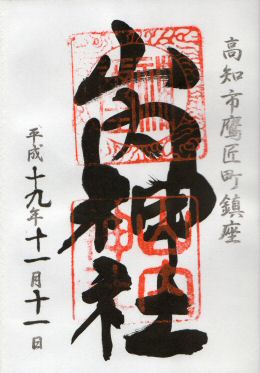 高知市鷹匠町鎮座
山内神社
平成十九年十一月十一日